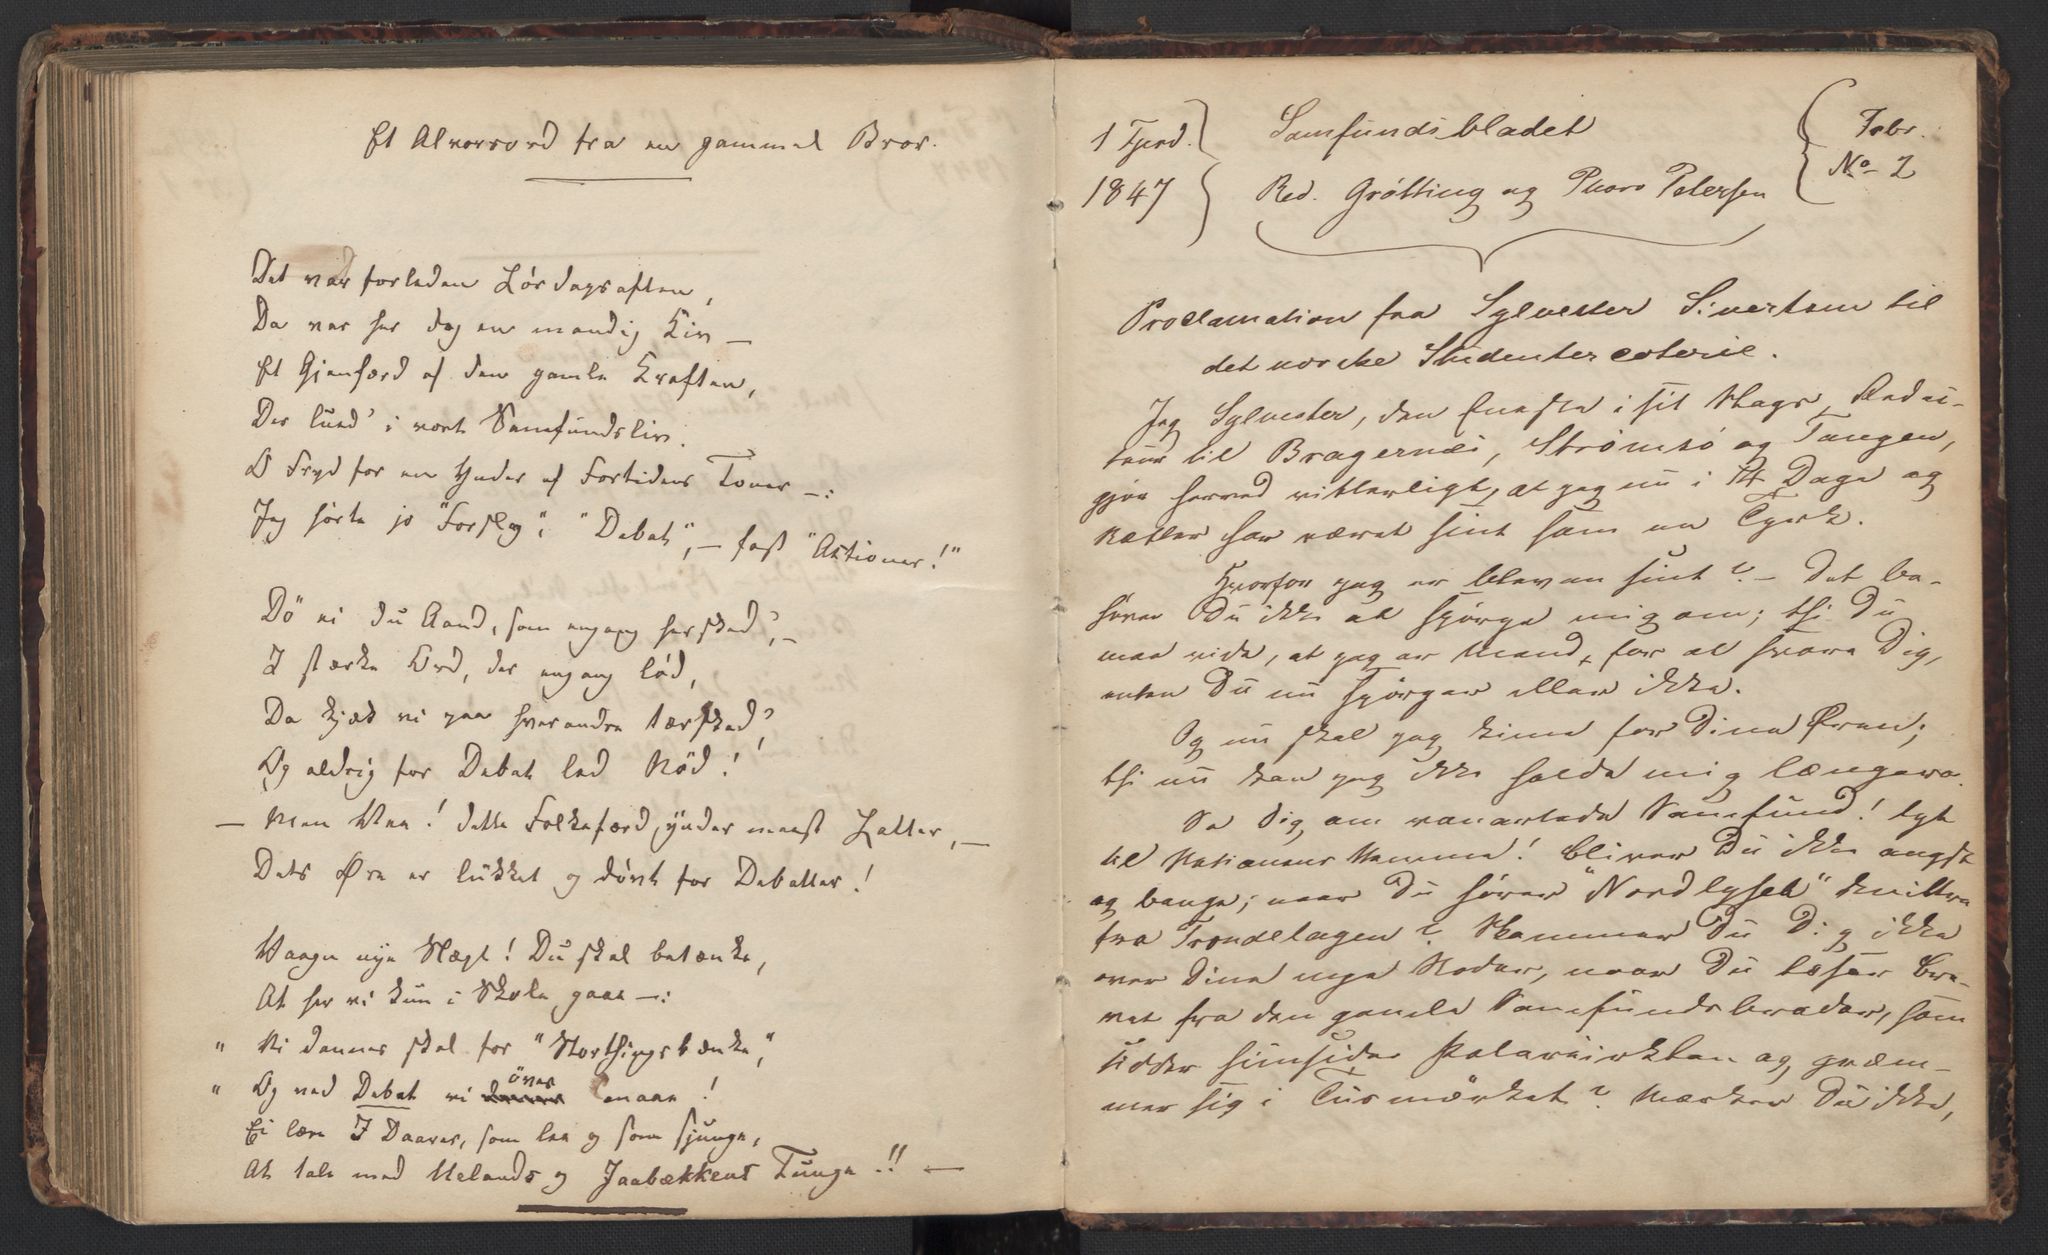 Et Alvorsord fra en gammel Bror.
Det var forleden Lørdagsaften,
Da var her dog en mandig Kiv —
Et Gjenfærd af den gamle Kraften,
Der lued' i vort Samfundsliv.
O Fryd for en Ynder af Fortidens Toner —:
Jeg hørte jo "Forslag"; "Debat", — fast "Aktioner!"
Dö ei du Aand, som engang hersked', —
I stærke Ord, der engang lød,
Da kjæk vi paa hverandre tærsked',
Og aldrig for Debat led Nöd!
— Men Vee! dette Folkefærd, ynder meest Latter, —
Dets Øre er lukket og døvt for Debatter!
Vaagn nye Slægt! Du skal betænke,
At her vi kun i Skole gaae —:
" Vi dannes skal for "Storthingsbænke",
" Og ved Debat vi öves maae!
Ei lære I Daarer, som lee og som sjunge,
At tale med Uelands og Jaabækkens Tunge!! —
1 Fjerd.
1847
Samfundsbladet
Red. Grötting og Thors Petersen
Febr.
No 2
Proclamation fra Sylvester Sivertsen til
det norske Studentercoterie.
Jeg Sylvester, den Eneste i sit Slags, Redac-
teur til Bragernæs, Strömsö og Tangen,
gjör herved vitterligt, at jeg nu i 14 Dage og
Nætter har været sint som en Tyrk.
Hvorfor jeg er bleven sint? — Det be-
höver Du ikke at spörge mig om; thi Du
maa vide, at jeg er Mand for at svare Dig,
enten Du nu spörger eller ikke.
Og nu skal jeg kime for Dine Øren;
thi nu kan jeg ikke holde mig længere.
Se Dig om vanartede Samfund! lyt
til Nationens Stemme! bliver Du ikke angst
og bange, naar Du hörer "Nordlyset" knittre
fra Trondelagen? Skammer Du Dig ikke
over Dine nye Noder, naar Du læser Bre-
vet fra den gamle Samfundsbroder, som
sidder hinsides Polarcirklen og græm-
mer sig i Tusmörket? Mærker Du ikke,